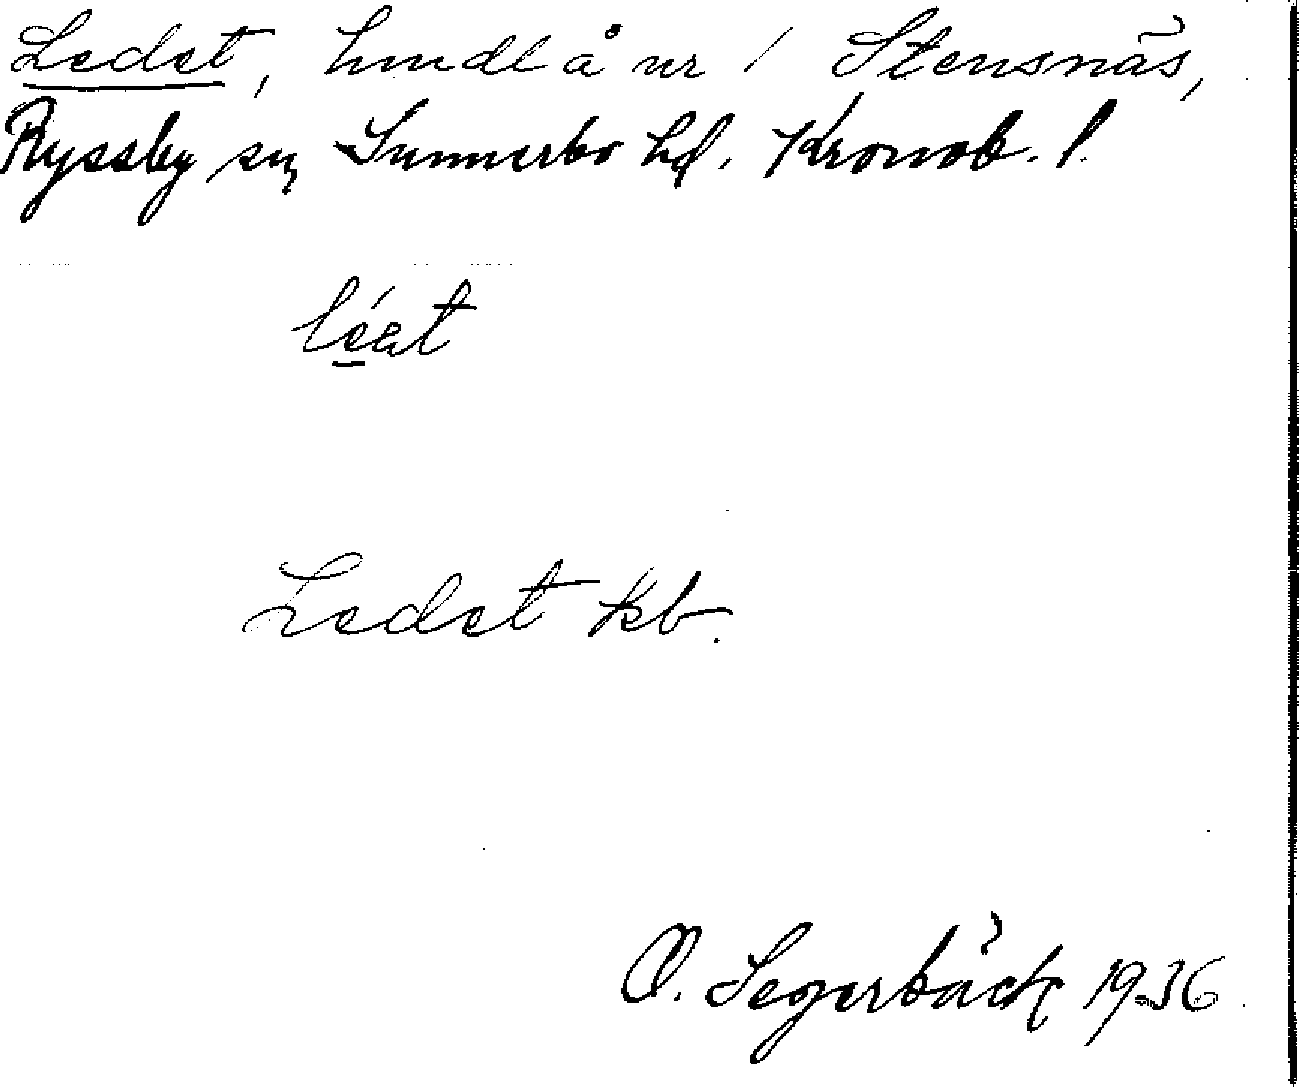 Ledet, hmdl å nr 1 Stensnäs,
Ryssby sn, Sunnerbo hd. Kronob. l.
Ledet kb.
O. Segerbäck 1936